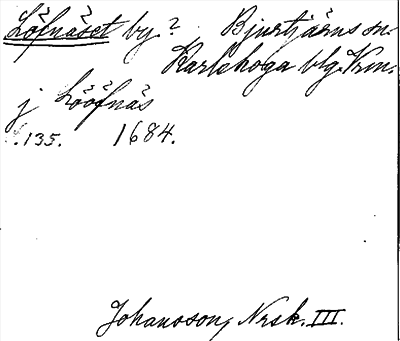 Löfnäset by? Bjurtjärns sn.
Karlskoga blg. Vrm.
j Löööfnäs
s. 135. 1684.
Johansson, Nrsk. III.